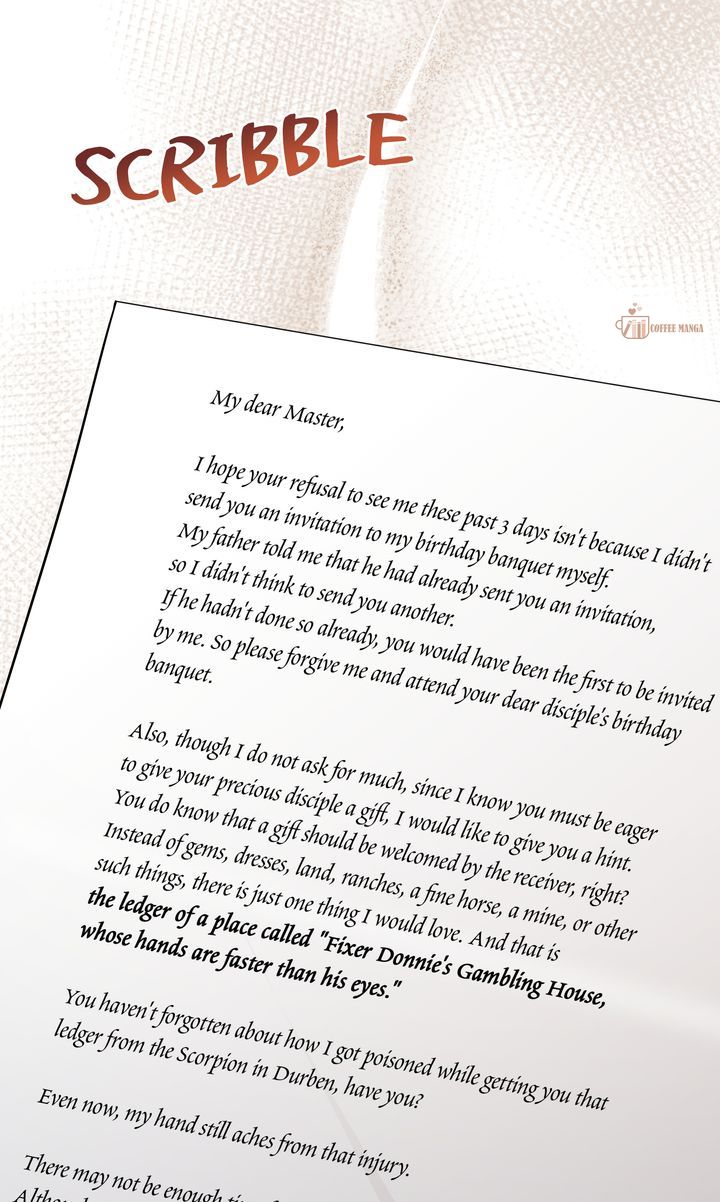 SCRIBBLE
COFFEE MANGA
My dear Master,
I hope your refusal to see me these past 3 days isn't because I didn't
send you an invitation to my birthday banquet myself.
My father told me that he had already sent you an invitation,
so I didn't think to send you another.
If he hadn't done so already, you would have been the first to be invited
by me. So please forgive me and attend your dear disciple's birthday
banquet.
Also, though I do not ask for much, since I know you must be eager
to give your precious disciple a gift, I would like to give you a hint.
You do know that a gift should be welcomed by the receiver, right?
Instead of gems, dresses, land, ranches, a fine horse, a mine, or other
such things, there is just one thing I would love. And that is
the ledger of a place called "Fixer Donnie's Gambling House,
whose hands are faster than his eyes."
You haven't forgotten about how I got poisoned while getting you that
ledger from the Scorpion in Durben, have you?
Even now, my hand still aches from that injury.
There may not be enough